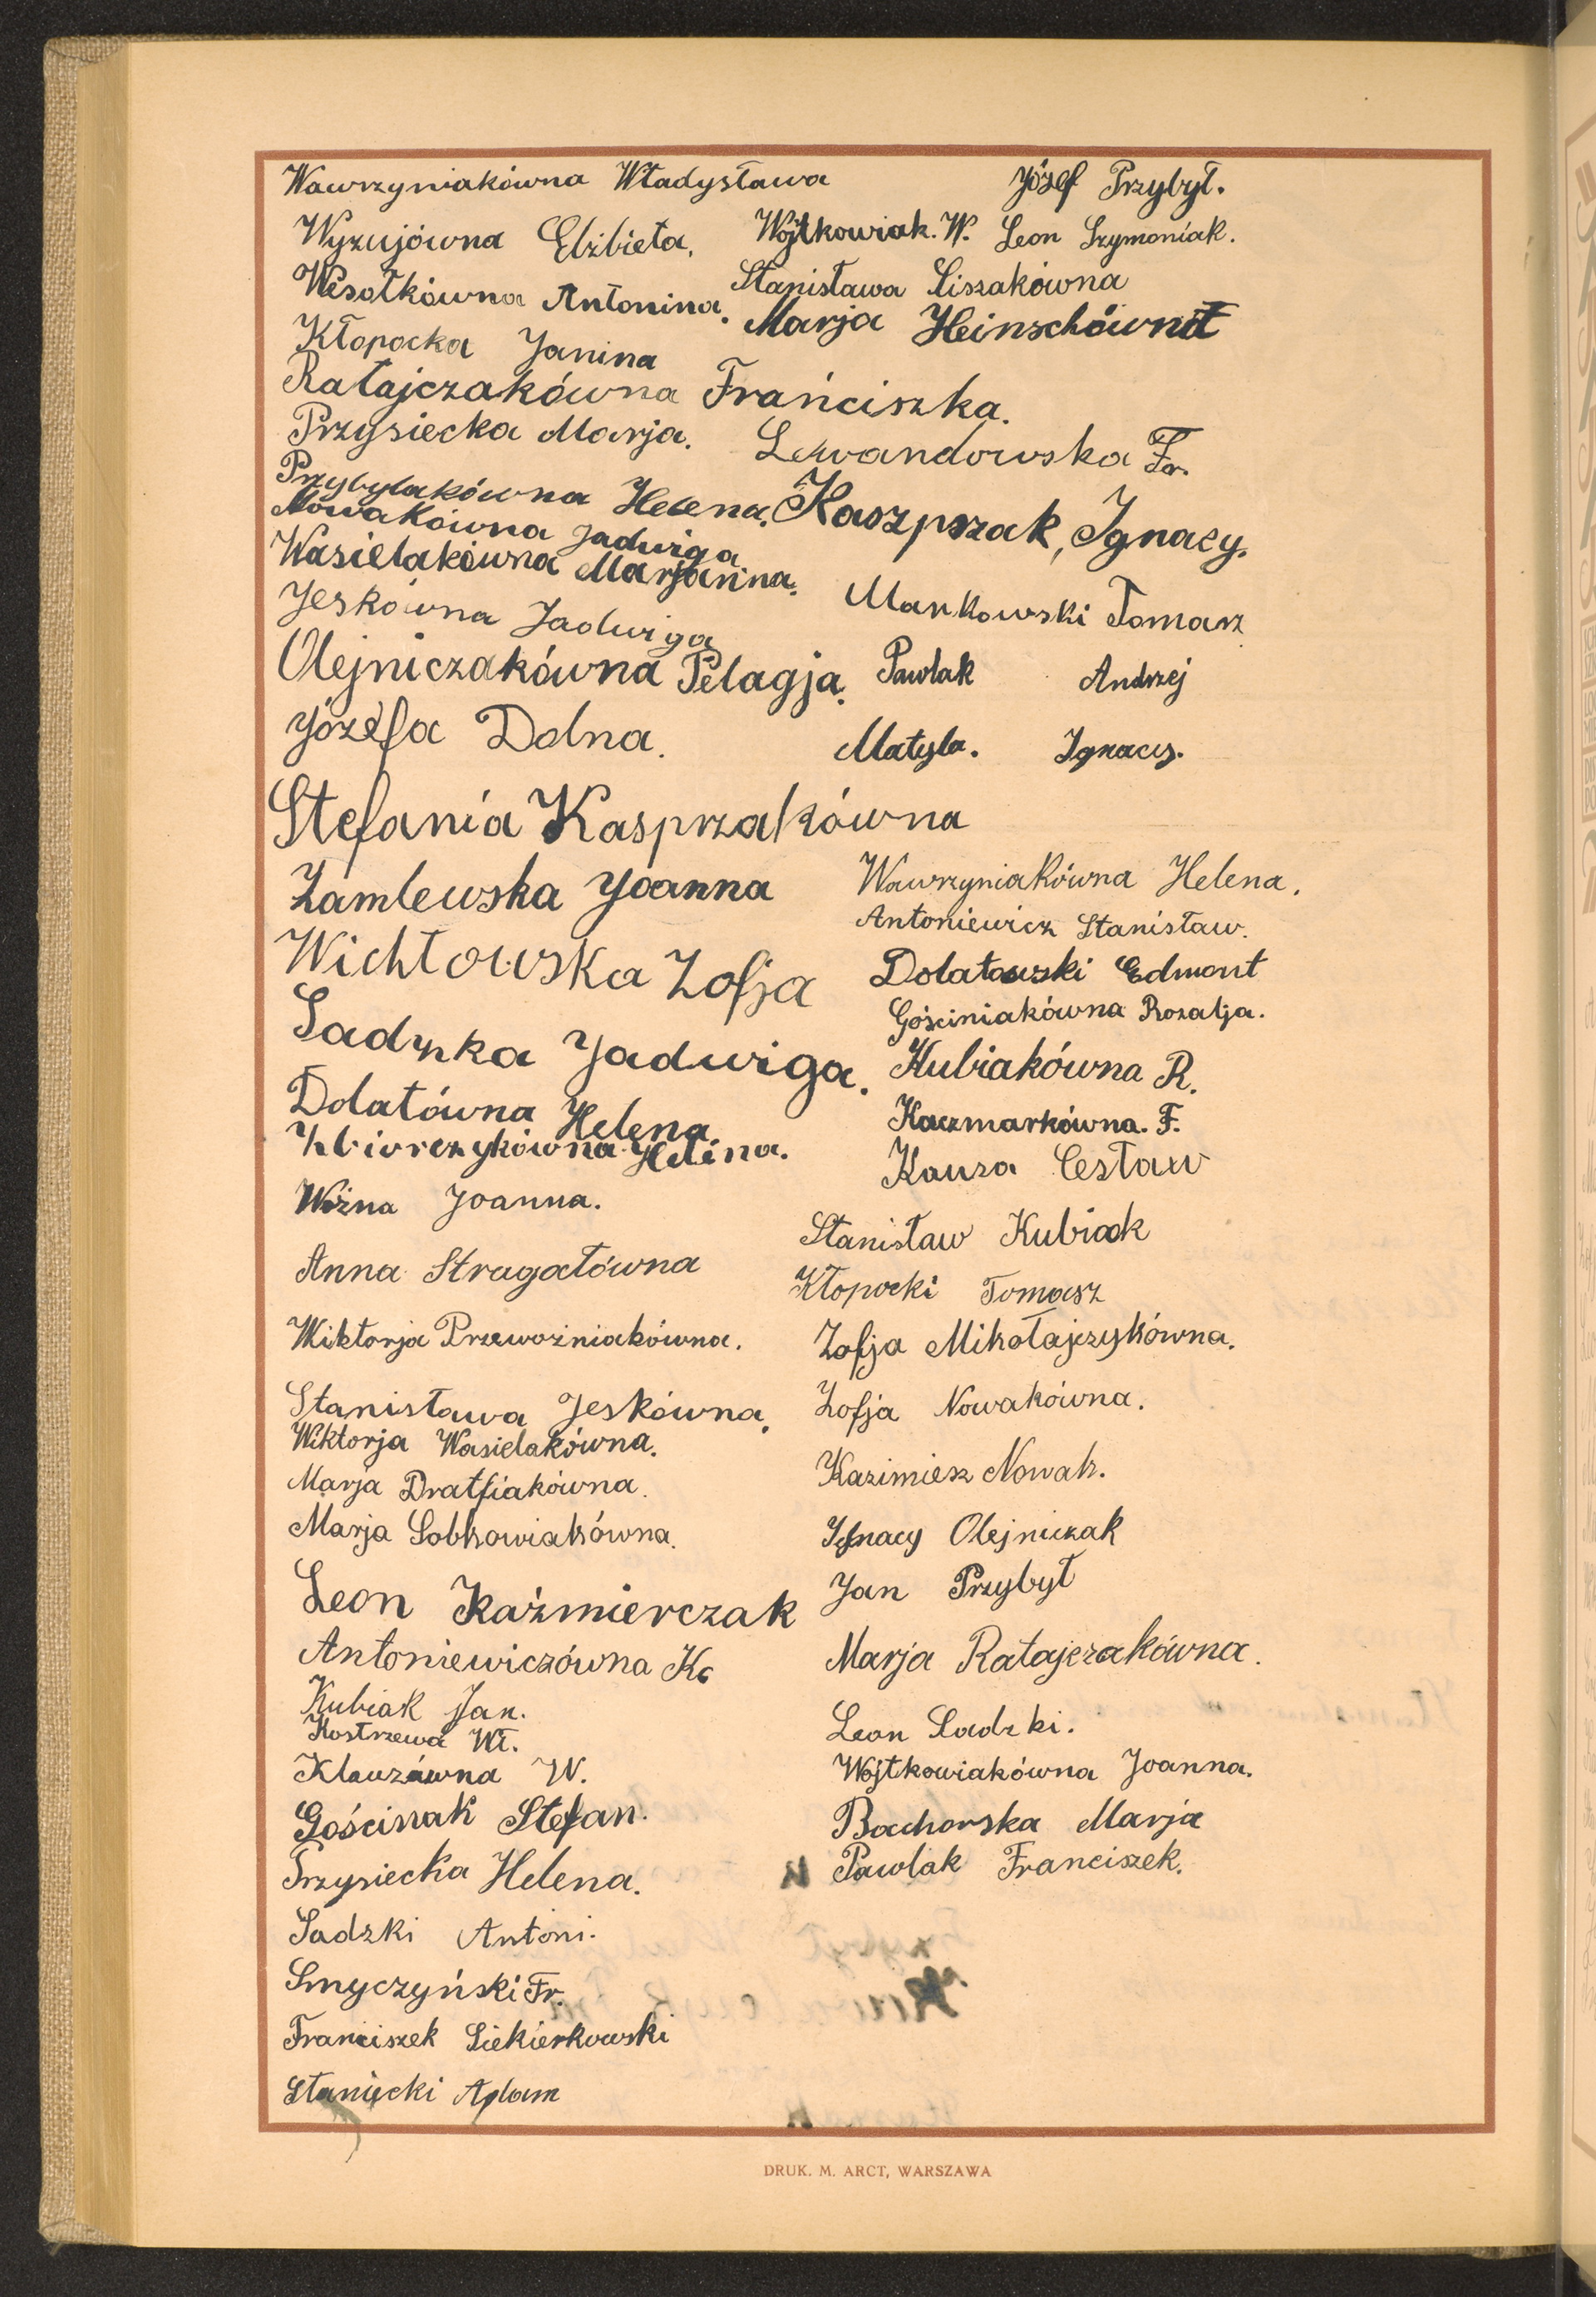 Wawrzyniakówna Władysława Józef Przybył.
Wyzujówna Elżbieta. Wojtkowiak. W. Leon Szymoniak.
Wesołkówna Antonina. Stanisława Liszakówna
Kłopocka Janina Marja Heinschówna
Ratajczakówna Frańciszka.
Przysiecka Marja. Lewandowska Fr.
Przybylakówna Helena. Kaszprzak, Ignacy.
Nowakówna Jadwiga
Wasielakówna Marjanna. Markowski Tomasz
Jeskówna Jadwiga
Olejniczakówna Pelagja. Pawlak Andrzej
Józefa Dolna. Matyla. Ignacy.
Stefania Kasprzakówna
Zamlewska Joanna Wawrzyniakówna Helena.
Antoniewicz Stanisław.
Wichłowska Zofja Dolatowski Edmont
Gościniakówna Rozalja.
Sadzka Jadwiga. Kubiakówna R.
Dolatówna Helena. Kaczmarkówna. F.
Zbiorczykówna Helena. Kauza Cesław
Woźna Joanna.
Stanisław Kubiak
Anna Stragatówna Kłopocki Tomasz
Wiktorja Przewoźniakówna. Zofja Mikołajczykówna.
Stanisława Jeskówna. Zofja Nowakówna.
Wiktorja Wasielakówna.
Marja Dratfiakówna. Kazimiesz Nowak.
Marja Sobkowiakówna. Ignacy Olejniczak
Leon Kaźmierczak Jan Przybył
Antoniewiczówna K. Marja Ratajczakówna.
Kubiak Jan.
Kostrzewa Wł. Leon Sadzki.
Klauzówna W. Wojtkowiakówna Joanna.
Gościnak Stefan. Bachorska Marja
Przysiecka Helena. Pawlak Franciszek.
Sadzki Antoni.
Smyczyński Fr.
Franciszek Siekierkowski
Staniecki Adam
DRUK. M. ARCT, WARSZAWA